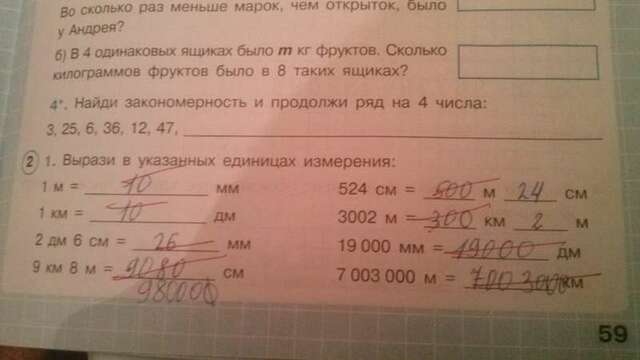 Во сколько раз меньше марок, чем открыток, было
у Андрея?
б) В 4 одинаковых ящиках было m кг фруктов. Сколько
килограммов фруктов было в 8 таких ящиках?
4*. Найди закономерность и продолжи ряд на 4 числа:
3, 25, 6, 36, 12, 47,
2 1. Вырази в указанных единицах измерения:
1 м = 10 мм
524 см = 500 м 24 см
1 км = 10 дм
3002 м = 300 км 2 м
2 дм 6 см = 26 мм
19 000 мм = 19000 дм
9 км 8 м = 9080 см
980000
7 003 000 м = 7003000 км
59